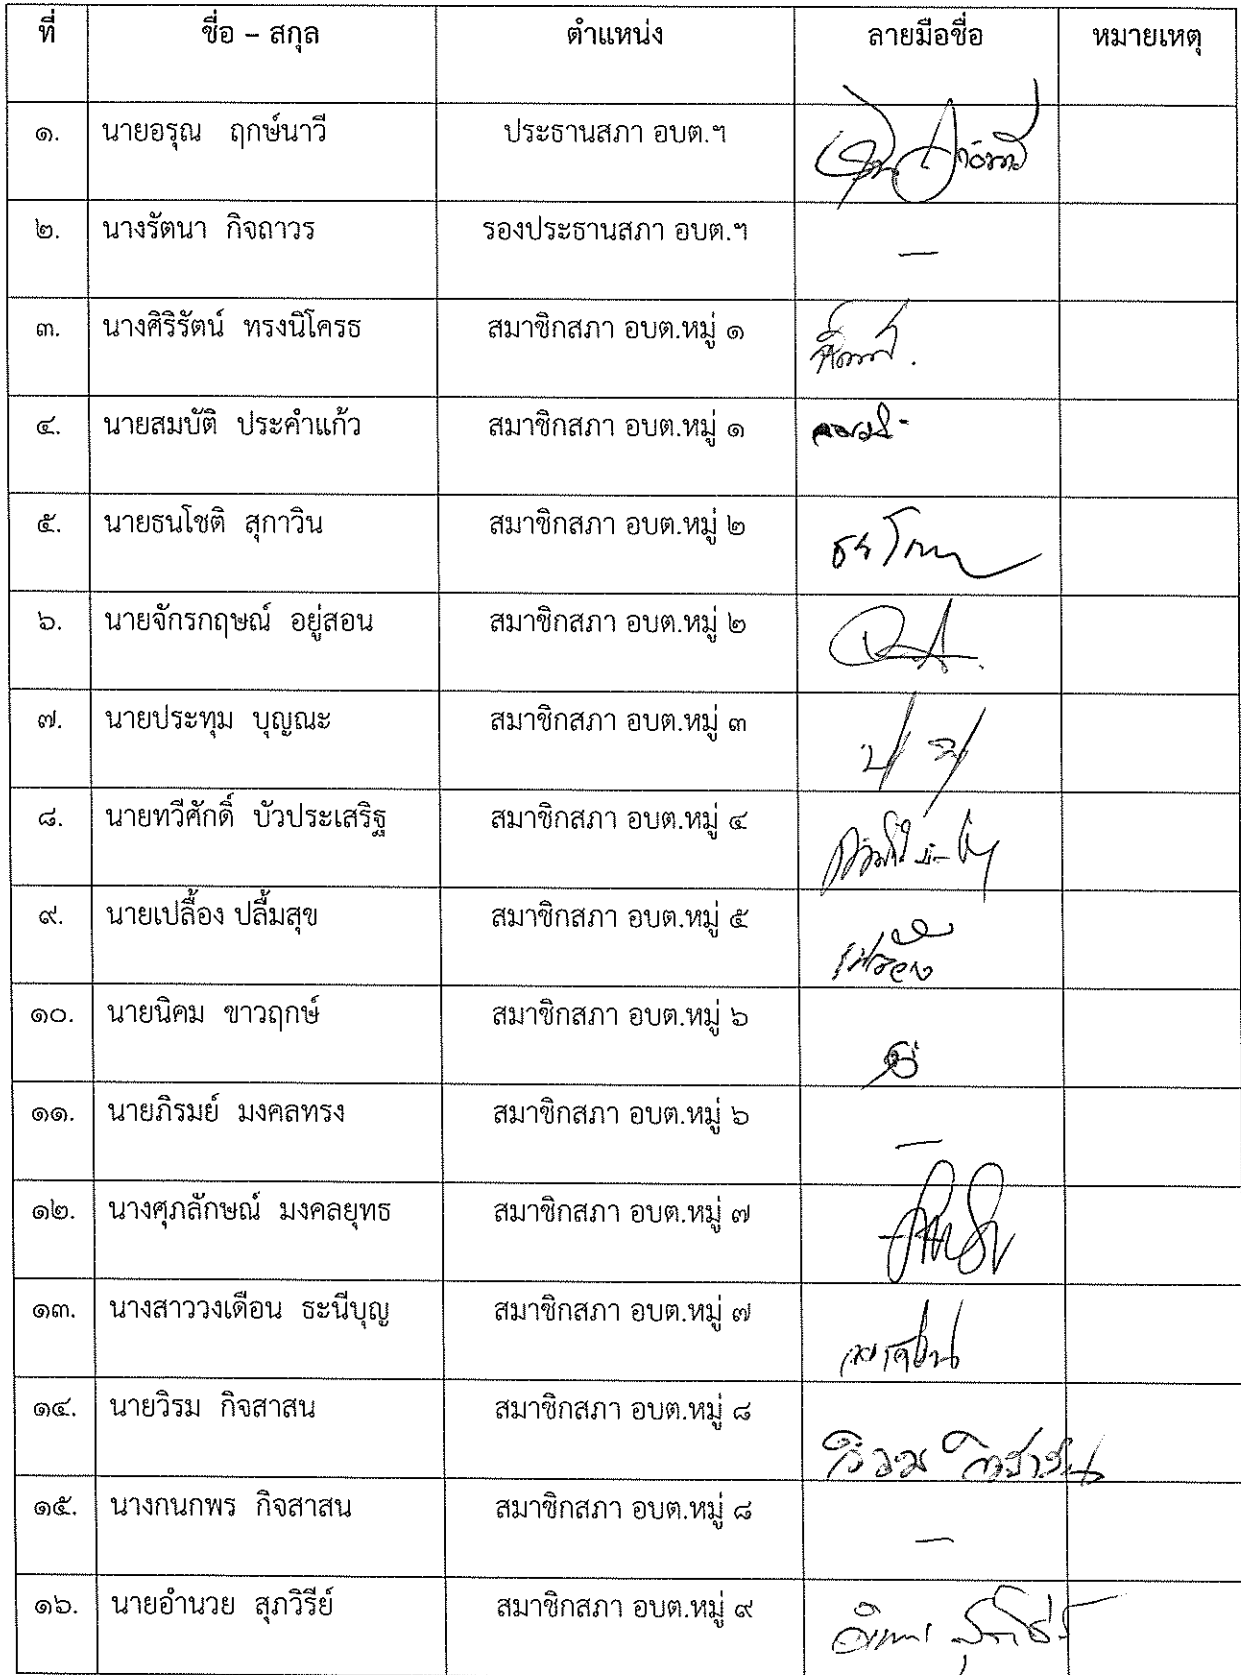 ที่ ชื่อ – สกุล ตำแหน่ง ลายมือชื่อ หมายเหตุ
๑. นายอรุณ ฤกษ์นาวี ประธานสภา อบต.ฯ
๒. นางรัตนา กิจถาวร รองประธานสภา อบต.ฯ —
๓. นางศิริรัตน์ ทรงนิโครธ สมาชิกสภา อบต.หมู่ ๑
๔. นายสมบัติ ประคำแก้ว สมาชิกสภา อบต.หมู่ ๑
๕. นายธนโชติ สุกาวิน สมาชิกสภา อบต.หมู่ ๒
๖. นายจักรกฤษณ์ อยู่สอน สมาชิกสภา อบต.หมู่ ๒
๗. นายประทุม บุญณะ สมาชิกสภา อบต.หมู่ ๓
๘. นายทวีศักดิ์ บัวประเสริฐ สมาชิกสภา อบต.หมู่ ๔
๙. นายเปลื้อง ปลื้มสุข สมาชิกสภา อบต.หมู่ ๕ เปลื้อง
๑๐. นายนิคม ขาวฤกษ์ สมาชิกสภา อบต.หมู่ ๖
๑๑. นายภิรมย์ มงคลทรง สมาชิกสภา อบต.หมู่ ๖ —
๑๒. นางศุภลักษณ์ มงคลยุทธ สมาชิกสภา อบต.หมู่ ๗
๑๓. นางสาววงเดือน ธะนีบุญ สมาชิกสภา อบต.หมู่ ๗
๑๔. นายวิรม กิจสาสน สมาชิกสภา อบต.หมู่ ๘ วิรม กิจสาสน
๑๕. นางกนกพร กิจสาสน สมาชิกสภา อบต.หมู่ ๘ —
๑๖. นายอำนวย สุภวิรีย์ สมาชิกสภา อบต.หมู่ ๙